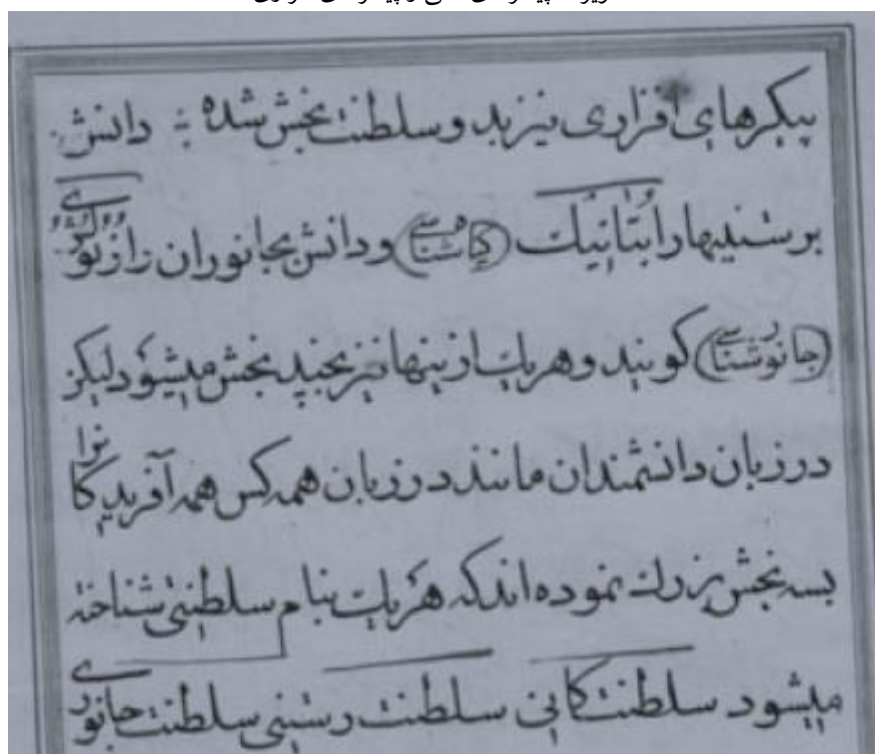 پیکرهای افزاری نیز بد و سلطنت بخش شده ؛ دانش
برستنیها را بُتانیک (گیاشناسی) و دانش بجانوران را زئولُژی
(جانورشناسی) کویند و هریک از ینها نیز بچند بخش میشود لیکن
در زبان دانشمندان مانند در زبان همه کس همه آفریدکانرا
بسه بخش بزرک نموده اند که هریک بنام سلطنتی شناخته
میشود سلطنت کانی سلطنت رستنی سلطنت جانوری